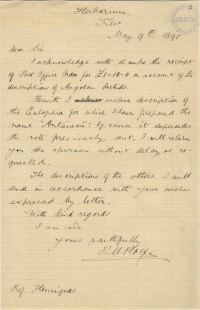 Herbarium
Kew
May 19th 1890
Dear Sir
I acknowledge with thanks the receipt
of Post Office Order for £1-10-0 on account of the
descriptions of Angolan Orchids.
Herewith I enclose description of
the for which I have proposed the
name "Antunesii"; of course it supersedes
the note previously sent. I will return
you the specimen without delay, as re-
quested.
The descriptions of the others, I will
send in accordance with your wishes
expressed by letter.
With kind regards
I am Sir
Yours faithfully
R A Rolfe
Prof. Henriques